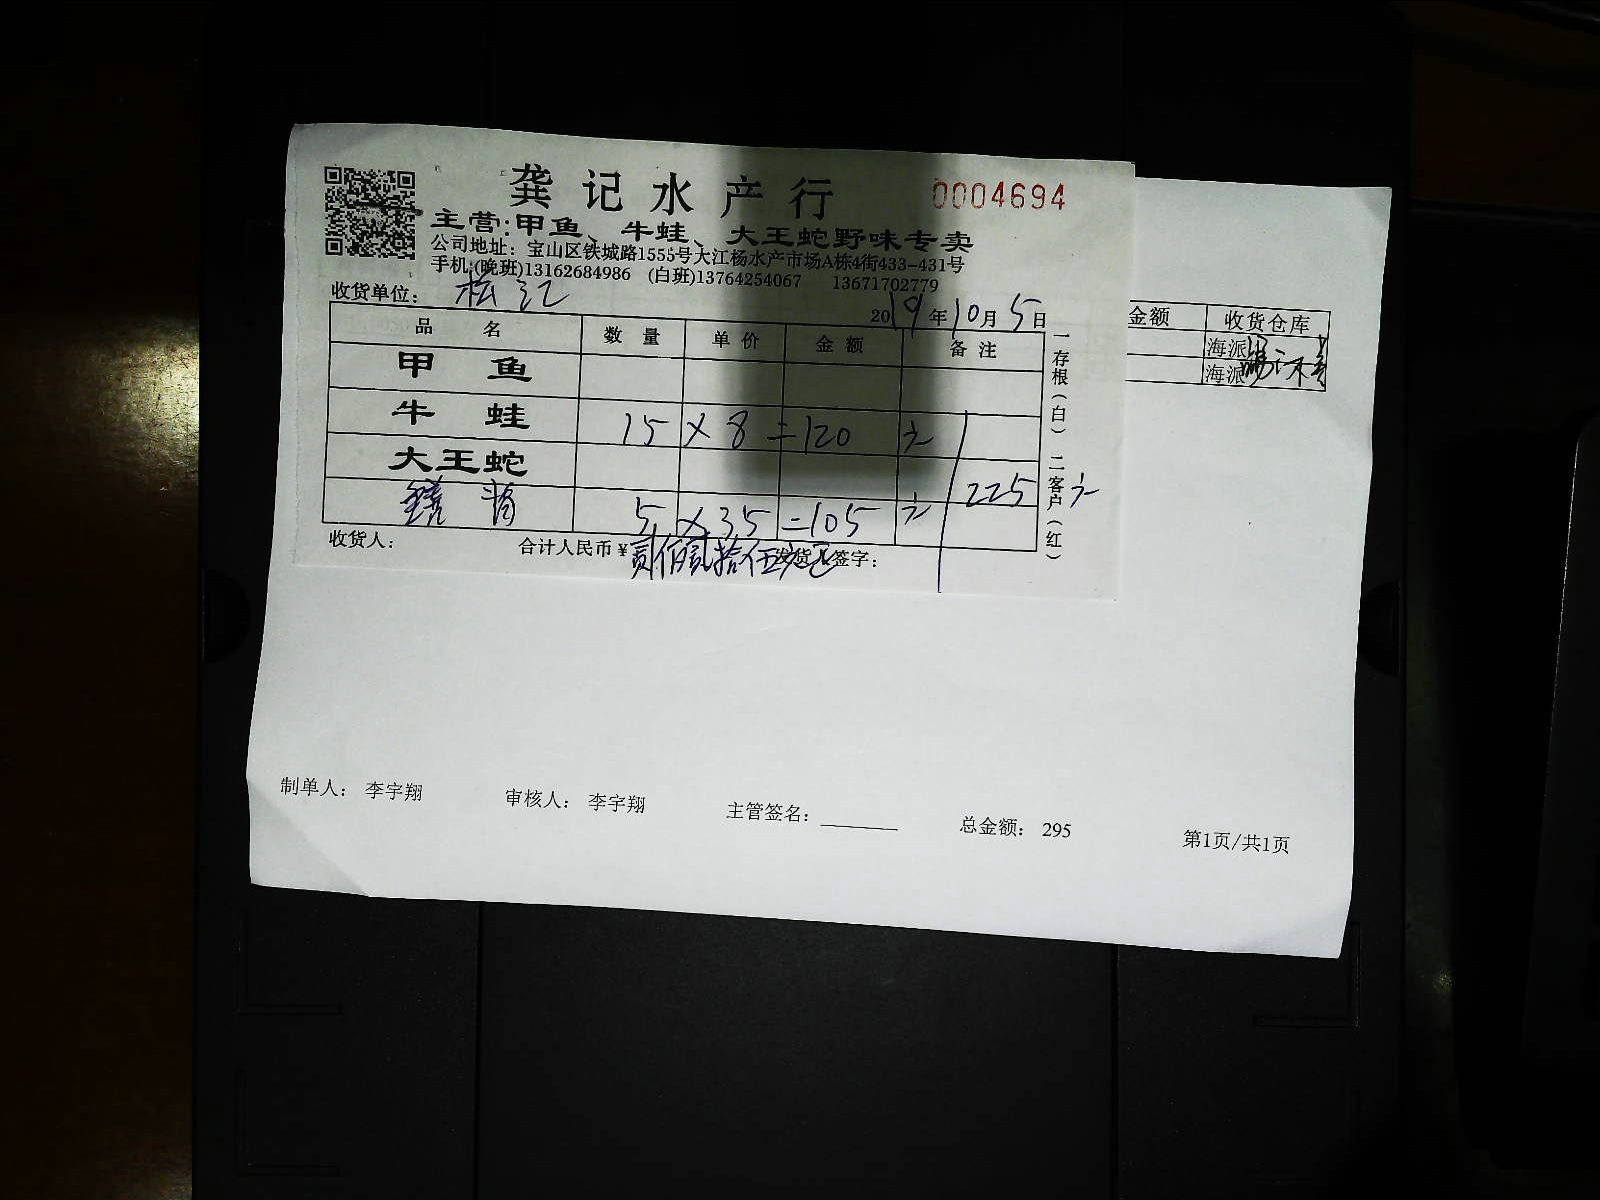 龚记水产行 0004694
主营:甲鱼、牛蛙、大王蛇野味专卖
公司地址：宝山区铁城路1555号大江杨水产市场A栋4街433-431号
手机:(晚班)13162684986 (白班)13764254067 13671702779
收货单位： 松江
2019年10月5日
品名 数量 单价 金额 备注
甲鱼
牛蛙 15 × 8 = 120 元
大王蛇
5 × 35 = 105 元
225 元
收货人： 合计人民币￥贰佰贰拾伍元 发货人签字：
一存根(白) 二客户(红)
金额 收货仓库
海派
海派
制单人： 李宇翔 审核人： 李宇翔 主管签名：________ 总金额： 295 第1页/共1页